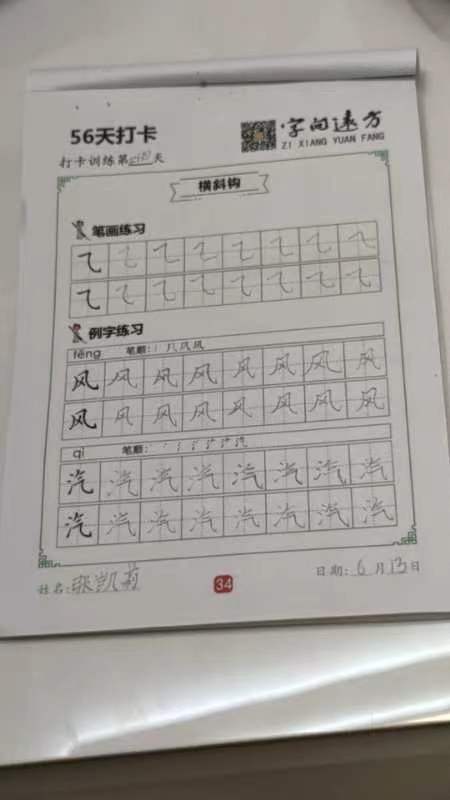 56天打卡
字向远方
ZI XIANG YUAN FANG
打卡训练第 天
横斜钩
笔画练习
⺄ ⺄ ⺄ ⺄ ⺄ ⺄ ⺄ ⺄
⺄ ⺄ ⺄ ⺄ ⺄ ⺄ ⺄ ⺄
例字练习
fēng 笔顺: 丿 几 风 风
风 风 风 风 风 风 风 风
风 风 风 风 风 风 风 风
qì 笔顺:
汽 汽 汽 汽 汽 汽 汽 汽
汽 汽 汽 汽 汽 汽 汽 汽
姓名: 张凯莉
34
日期: 6月13日